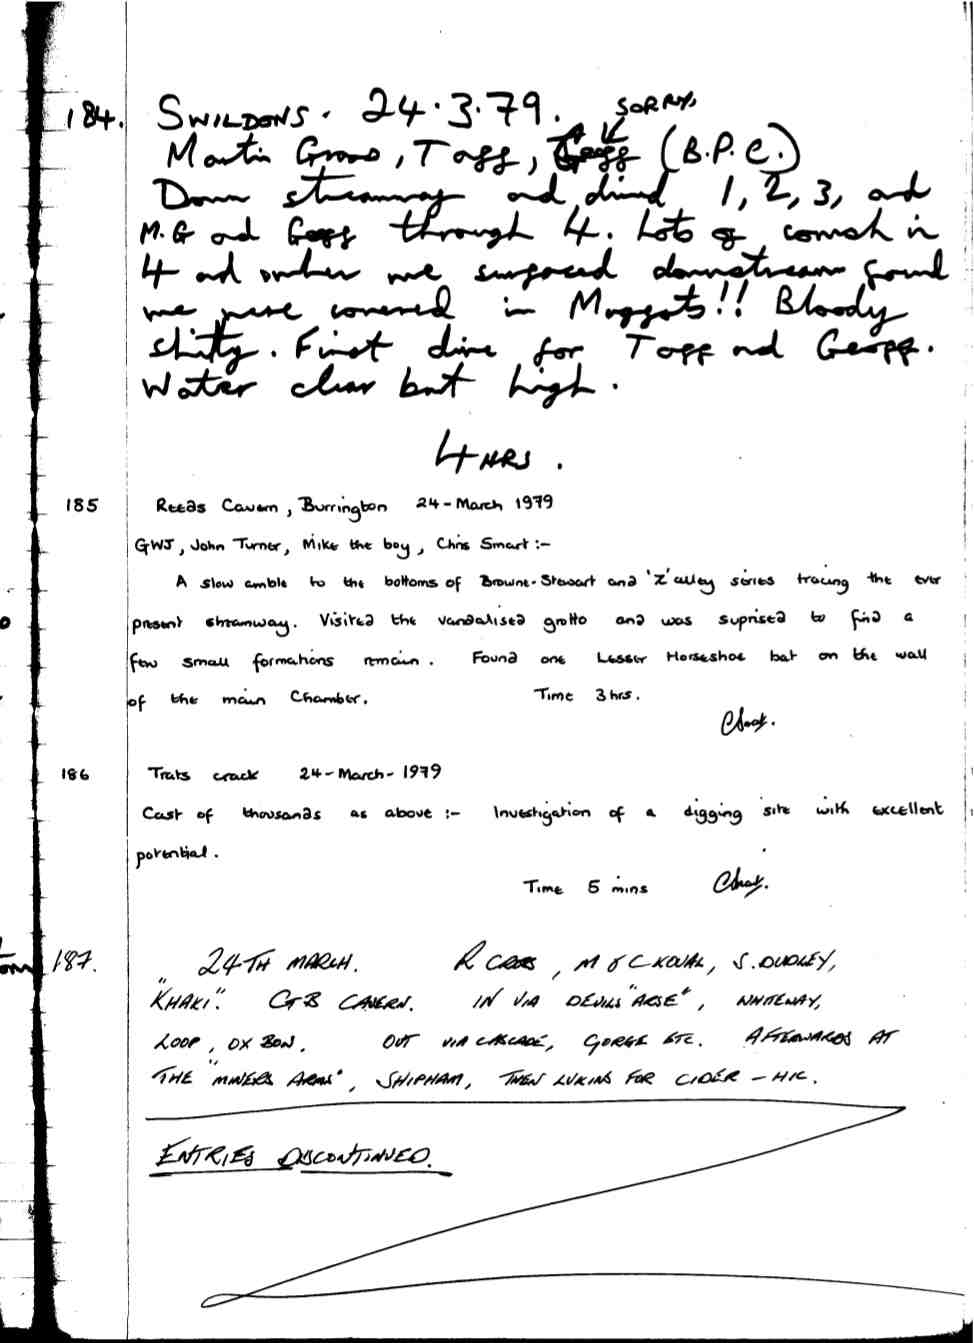 184. SWILDONS. 24.3.79. SORRY,
Martin Grass, Taff, Geoff (B.P.C.)
Down streamway and dived 1, 2, 3, and
M.G and Geoff through 4. Lots of comsh in
4 and when we surfaced downstream found
we were covered in Maggots!! Bloody
shitty. First dive for Taff and Geoff.
Water clear but high.
4 HRS.
185 Reeds Cavern, Burrington 24-March 1979
GWJ, John Turner, Mike the boy, Chris Smart :-
A slow amble to the bottoms of Browne-Stewart and 'Z' alley series tracing the ever
present streamway. Visited the vandalised grotto and was suprised to find a
few small formations remain. Found one Lesser Horseshoe bat on the wall
of the main Chamber. Time 3hrs.
186 Trats crack 24-March-1979
Cast of thousands as above :- Investigation of a digging site with excellent
potential.
Time 5 mins
187. 24TH MARCH. R CROSS, M & C KOVAL, S. DUDLEY,
"KHAKI". GB CAVERN. IN VIA DEVILS "ARSE", WHITEWAY,
LOOP, OX BOW. OUT VIA CASCADE, GORGE ETC. AFTERWARDS AT
THE "MINERS ARMS", SHIPHAM, THEN LUKINS FOR CIDER - HIC.
ENTRIES DISCONTINUED.